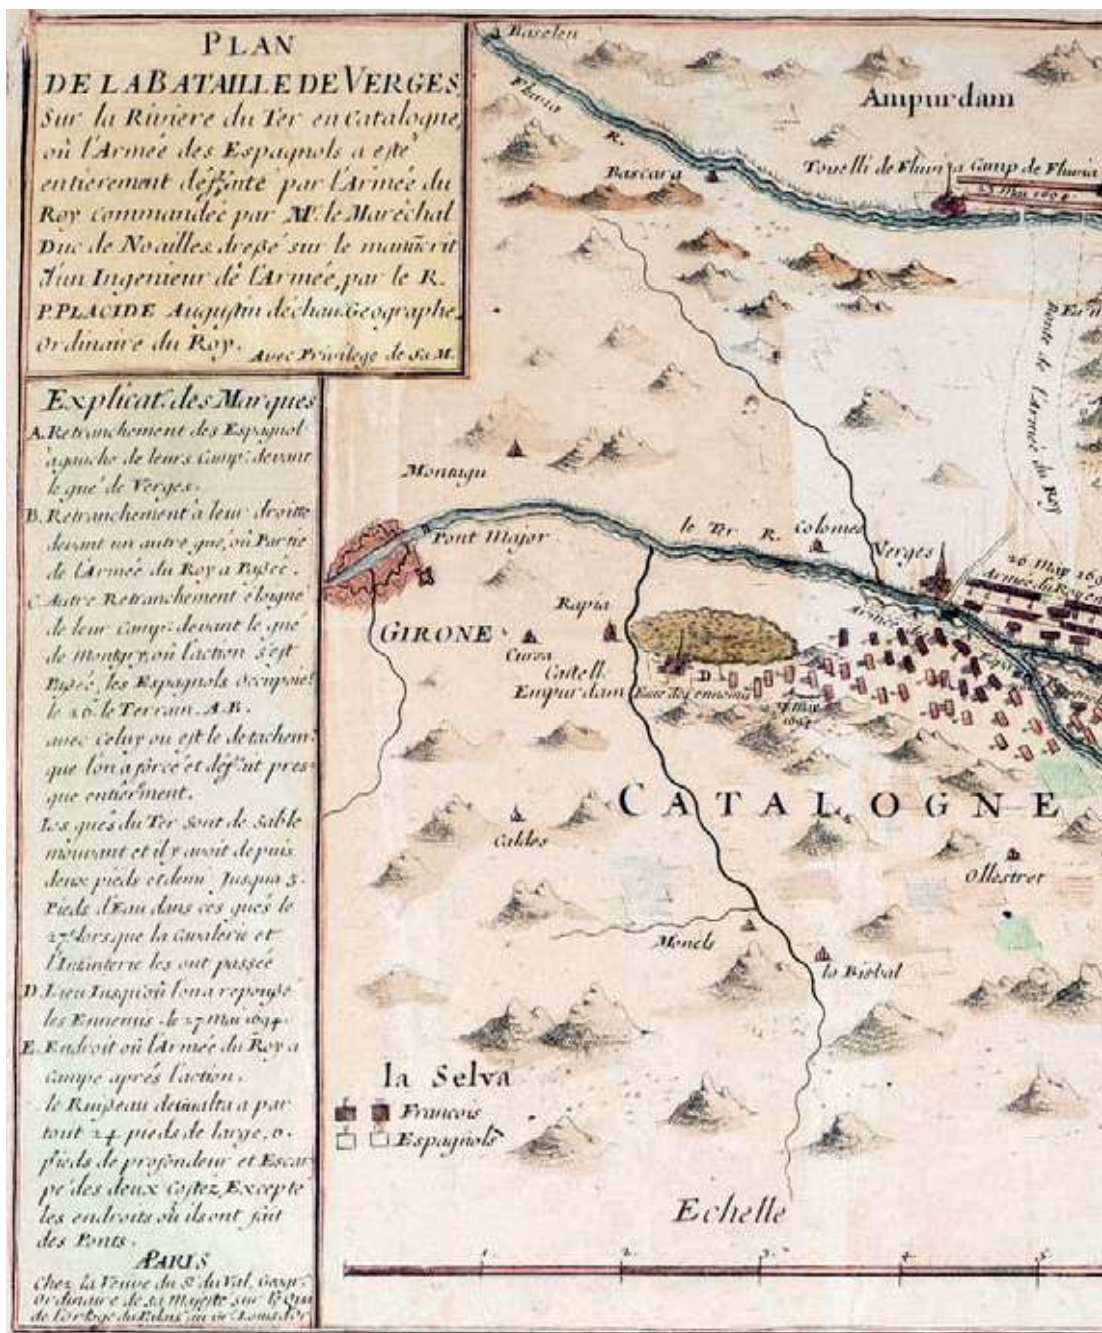 PLAN
DE LA BATAILLE DE VERGES
Sur la Riviere du Ter en Catalogne,
où l'Armée des Espagnols a esté
entierement déffaite par l'Armée du
Roy commandée par Mr. le Maréchal
Duc de Noailles dressé sur le manuscrit
d'un Ingenieur de l'Armée, par le R.
P. PLACIDE Augustin déchau. Geographe
Ordinaire du Roy.
Avec Privilege de Sa M.
Explicat. des Marques
A. Retranchement des Espagnol
a gauche de leurs Camp. devant
le gué de Verges.
B. Retranchement a leur droitte
devant un autre gué, où Partie
de l'Armée du Roy a Passée.
C. Autre Retranchement éloigné
de leur Camp. devant le gué
de Montgry, où l'action s'est
Passée, les Espagnols Occupoiet
le 26. le Terrain. A.B.
avec Celuy ou est le detachem.t
que lon a forcé et déffait pres-
que entierment.
Les gués du Ter sont de sable
mouvant et il y avoit depuis
deux pieds et demi Jusqua 3.
Pieds d'Eau dans ces gués le
27e lorsque la Cavalerie et
l'Infanterie les ont passée
D. Lieu Jusqu'où lon a repoussé
les Ennemis le 27 Mai 1694.
E. Endroit où l'Armée du Roy a
Campé aprés l'action.
le Ruisseau de Gualta a par
tout 24 pieds de large, 6.
pieds de profondeur et Escar
pé des deux Costez, Excepté
les endroits où ils ont fait
des Ponts.
A PARIS
Chez la Veuve du Sr. du Val, Geogr.
Ordinaire de sa Majesté sur le Quai
de l'orloge du Palais au
Baselen
Fluvia R.
Ampurdam
Bascara
Camp de Fluvia
Mai 1694
Route de l'Armée du Roy
Montagu
Pont Major
le Ter R.
Colomes
Verges
26 May 169
Armée du Roy en
GIRONE
Rapia
Cursa
Castell
Empurdam
D
CATALOGNE
Caldes
Ollestret
Monels
la Bisbal
la Selva
Francois
Espagnols
Echelle
1
2
3
4
5